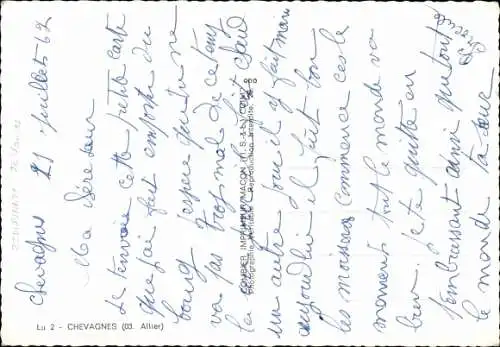 Chevagnes 21 juillets 62
Ma chère sœur
Je t'envoie cette petite carte
que j'ai fait emporter du
bourg j'espère que tu ne
va pas trop mal de ce temps
la fait chaud
un autre jour il y fait mauvais
aujourd'hui il fait bon
les moissons commence ces le
moments tout le monde va
bien. je te quitte en
t'embrassant ainsi que tout
le monde ta sœur
COMBIER IMPRIMEUR MACON
Lu 2 - CHEVAGNES (03. Allier)